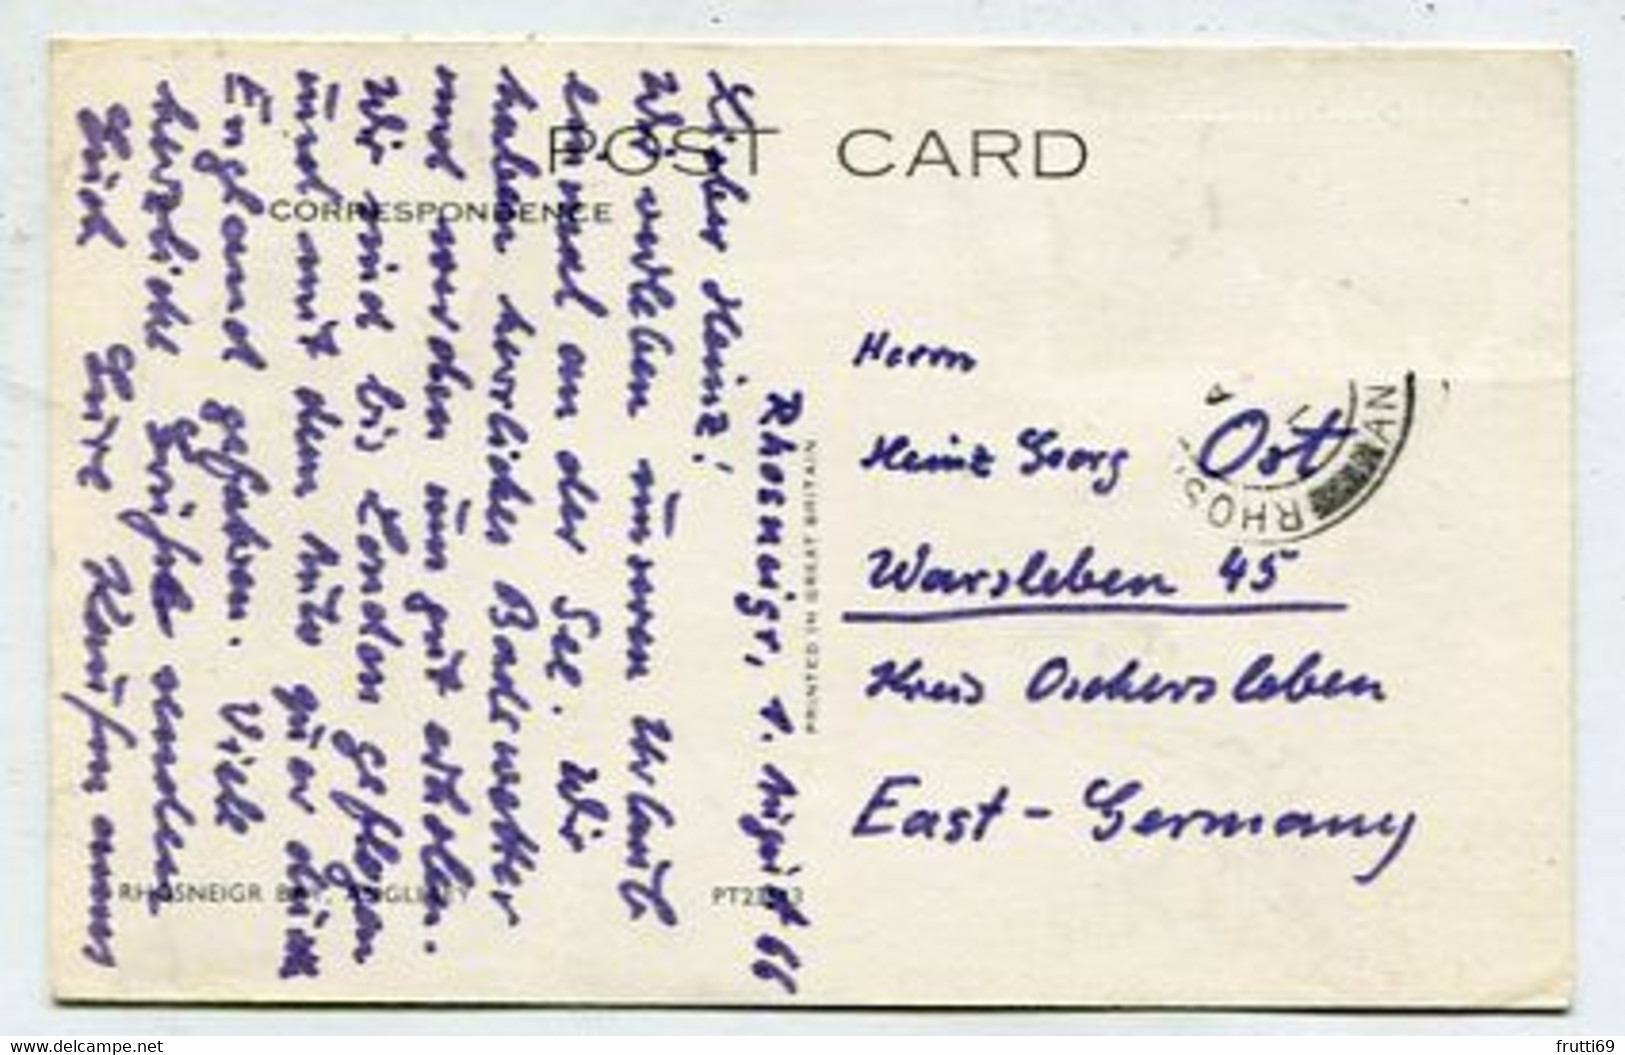 POST CARD
CORRESPONDENCE
Rhosneigr, August 66
Lieber Heinz!
Wir verleben unseren Urlaub
einmal an der See. Wir
haben herrliches Badewetter
und werden uns gut erholen.
Wir sind bis London geflogen
und mit dem Auto quer durch
England gefahren. Viele
herzliche Grüße senden
Dich Eure
RHOSNEIGR BAY, ANGLESEY
PRINTED IN GREAT BRITAIN
Herrn
Heinz Georg Ost
Warsleben 45
Kreis Oschersleben
East - Germany
RHOS
AN
delcampe.net
frutti69